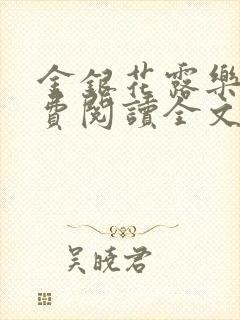 金銀花露樂
費閱讀全文
吳曉君